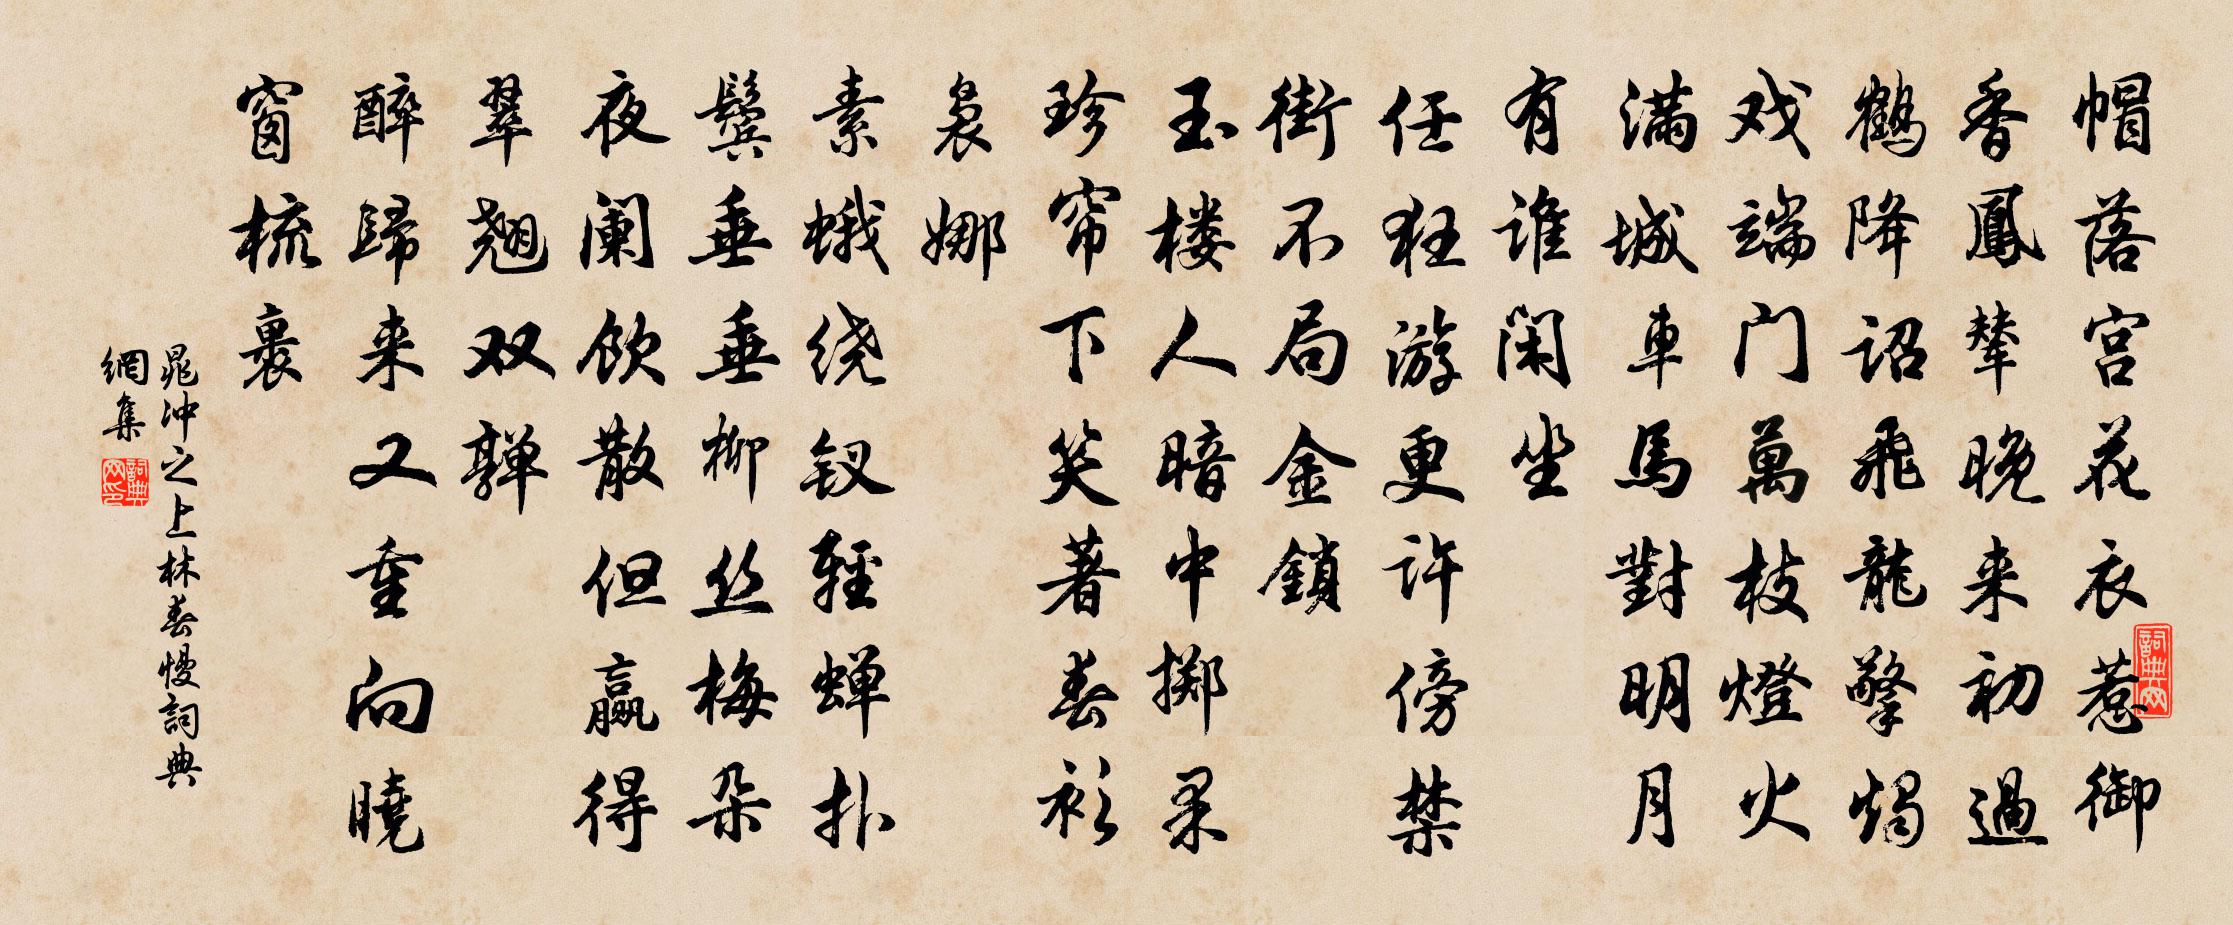 帽落宫花衣惹御
香鳳辇晚来初過
鶴降诏飛龍擎燭
戏端门萬枝燈火
满城車馬對明月
有谁闲坐
任狂游更许傍禁
街不局金鎖
玉楼人暗中掷果
珍帘下笑著春衫
袅娜
素蛾绕钗輕蝉扑
鬓垂垂柳丝梅朵
夜阑饮散但赢得
翠翘双亸
醉歸来又重向曉
窗梳裹
晁冲之上林春慢詞典
網集
詞典网
詞典网印